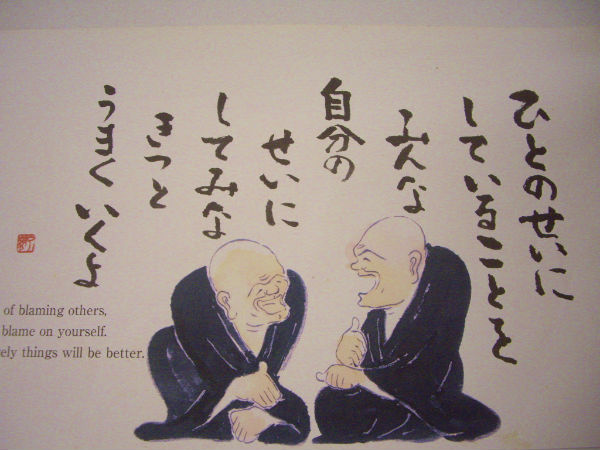 ひとのせいに
していることを
みんな
自分の
せいに
してみな
きっと
うまくいくよ
of blaming others,
blame on yourself.
ely things will be better.